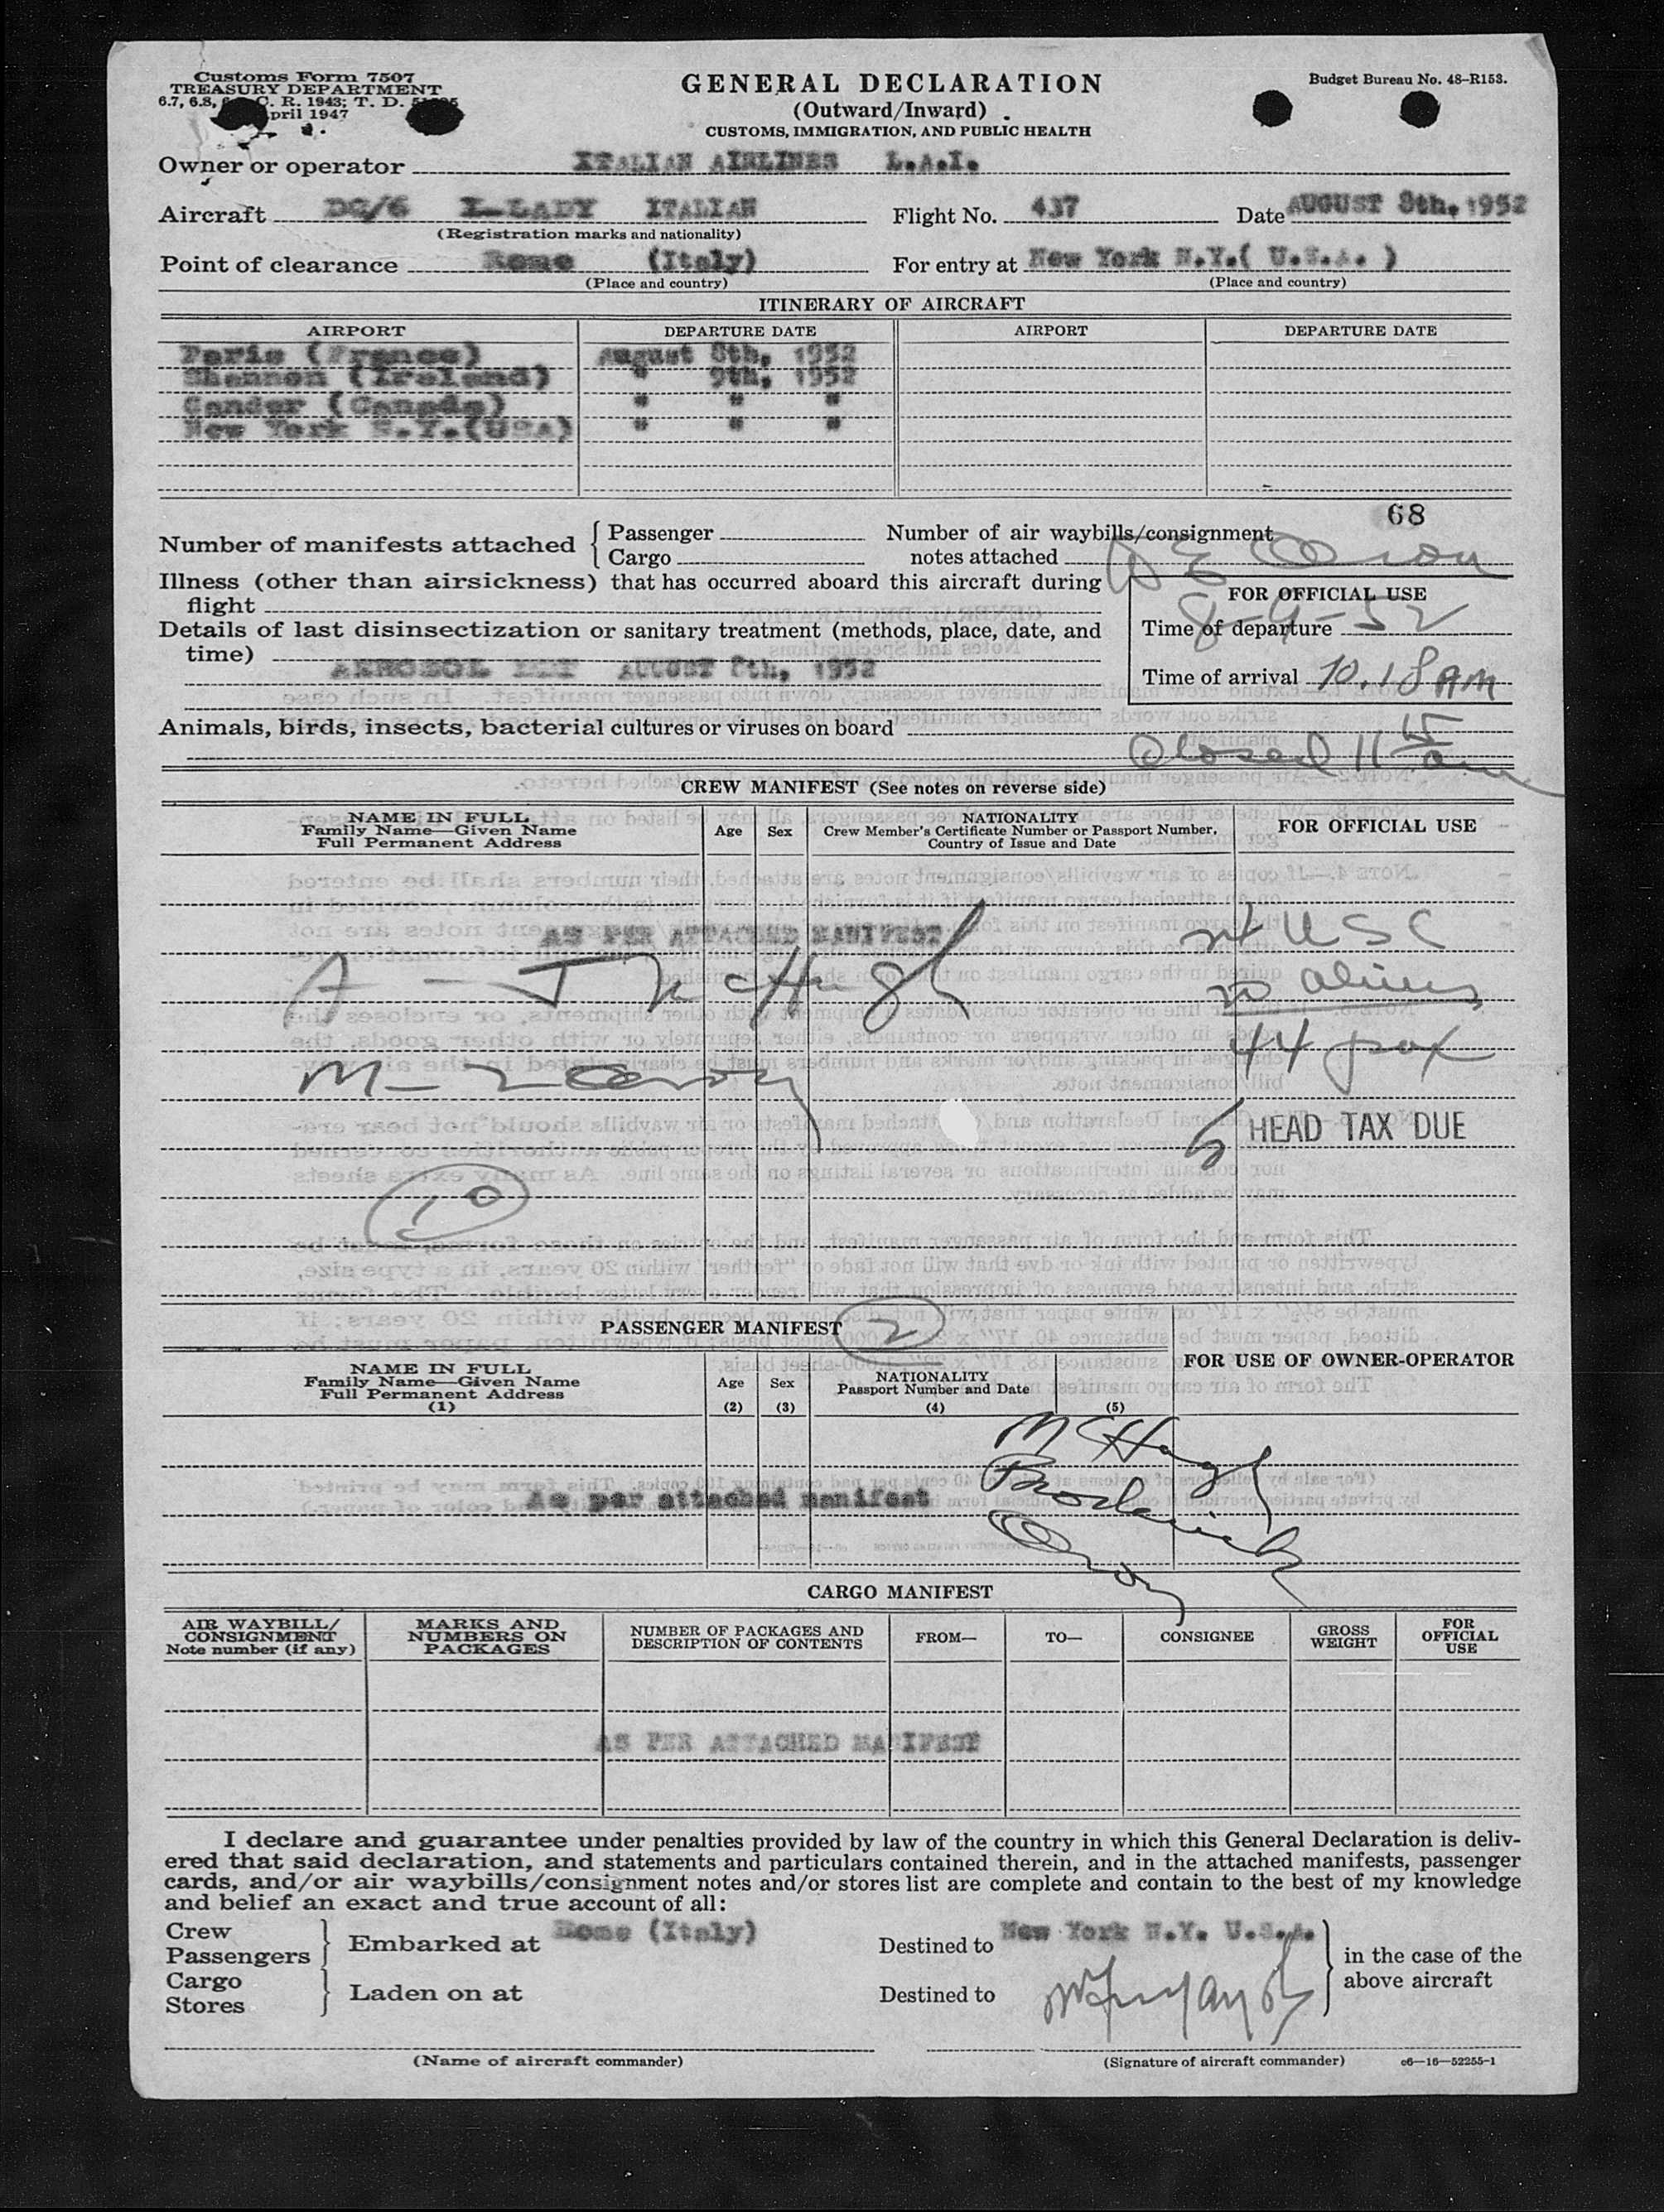 Customs Form 7507
TREASURY DEPARTMENT
6.7, 6.8, C. R. 1943; T. D.
April 1947
GENERAL DECLARATION
(Outward/Inward)
CUSTOMS, IMMIGRATION, AND PUBLIC HEALTH
Budget Bureau No. 48-R153.
Owner or operator ITALIAN AIRLINES L.A.I.
Aircraft DC/6 I-LADY ITALIAN Flight No. 437 Date AUGUST 8th, 1952
(Registration marks and nationality)
Point of clearance Rome (Italy) For entry at New York N.Y.( U.S.A. )
(Place and country) (Place and country)
ITINERARY OF AIRCRAFT
AIRPORT DEPARTURE DATE AIRPORT DEPARTURE DATE
Paris (France) August 8th, 1952
Shannon (Ireland) " 9th, 1952
Gander (Canada) " " "
New York N.Y.(USA) " " "
68
Number of manifests attached { Passenger
Cargo
Number of air waybills/consignment
notes attached
Illness (other than airsickness) that has occurred aboard this aircraft during
flight
Details of last disinsectization or sanitary treatment (methods, place, date, and
time)
AEROSOL DDT AUGUST 8th, 1952
FOR OFFICIAL USE
8-9-52
Time of departure
Time of arrival 10.18 AM
Animals, birds, insects, bacterial cultures or viruses on board
Closed 11 15 am
CREW MANIFEST (See notes on reverse side)
NAME IN FULL
Family Name—Given Name
Full Permanent Address
Age Sex
NATIONALITY
Crew Member's Certificate Number or Passport Number,
Country of Issue and Date
FOR OFFICIAL USE
AS PER ATTACHED MANIFEST
USC
A - J McHugh
20 aliens
44 pax
M-
5 HEAD TAX DUE
10
PASSENGER MANIFEST 2
NAME IN FULL
Family Name—Given Name
Full Permanent Address
(1)
Age
(2)
Sex
(3)
NATIONALITY
Passport Number and Date
(4)
(5)
FOR USE OF OWNER-OPERATOR
McHugh
As per attached manifest
CARGO MANIFEST
AIR WAYBILL/
CONSIGNMENT
Note number (if any)
MARKS AND
NUMBERS ON
PACKAGES
NUMBER OF PACKAGES AND
DESCRIPTION OF CONTENTS
FROM—
TO—
CONSIGNEE
GROSS
WEIGHT
FOR
OFFICIAL
USE
AS PER ATTACHED MANIFEST
I declare and guarantee under penalties provided by law of the country in which this General Declaration is deliv-
ered that said declaration, and statements and particulars contained therein, and in the attached manifests, passenger
cards, and/or air waybills/consignment notes and/or stores list are complete and contain to the best of my knowledge
and belief an exact and true account of all:
Crew
Passengers } Embarked at Rome (Italy) Destined to New York N.Y. U.S.A.
Cargo
Stores } Laden on at Destined to
in the case of the
above aircraft
(Name of aircraft commander) (Signature of aircraft commander) c6—16—52255-1